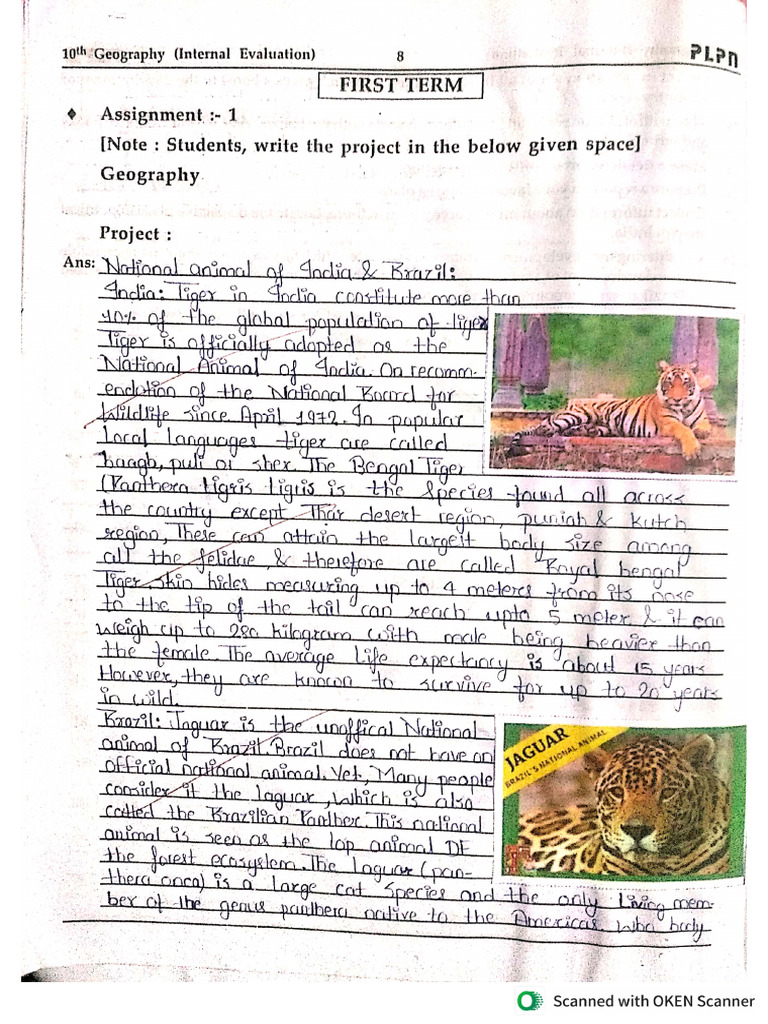 10th Geography (Internal Evaluation) 8 PLPN
FIRST TERM
♦ Assignment :- 1
[Note : Students, write the project in the below given space]
Geography
Project :
Ans: National animal of India & Brazil:
India: Tiger in India constitute more than
40% of the global population of tiger
Tiger is officially adopted as the
National Animal of India. On recomm-
endation of the National Board for
Wildlife since April 1972. In popular
local languages tiger are called
baagh, puli or sher. The Bengal Tiger
(Panthera tigris tigris is the species found all across
the country except Thar desert region, punjab & kutch
region, These can attain the largest body size among
all the felidae, & therefore are called Royal bengal
Tiger. Skin hides measuring up to 4 meteres from its nose
to the tip of the tail can reach upto 5 meter & it can
weigh up to 280 kilogram with male being heavier than
the female. The average life expectancy is about 15 years
However, they are known to survive for up to 20 years
in wild.
Brazil: Jaguar is the unoffical National
animal of Brazil. Brazil does not have an
official national animal. Yet, Many people
consider it the Jaguar, which is also
called the Brazilian Panther. This national
animal is seen as the top animal OF
the forest ecosystem. The Jaguar (pan-
thera onca) is a large cat species and the only living mem-
ber of the genus panthera native to the Americas. body
JAGUAR
BRAZIL'S NATIONAL ANIMAL
Scanned with OKEN Scanner